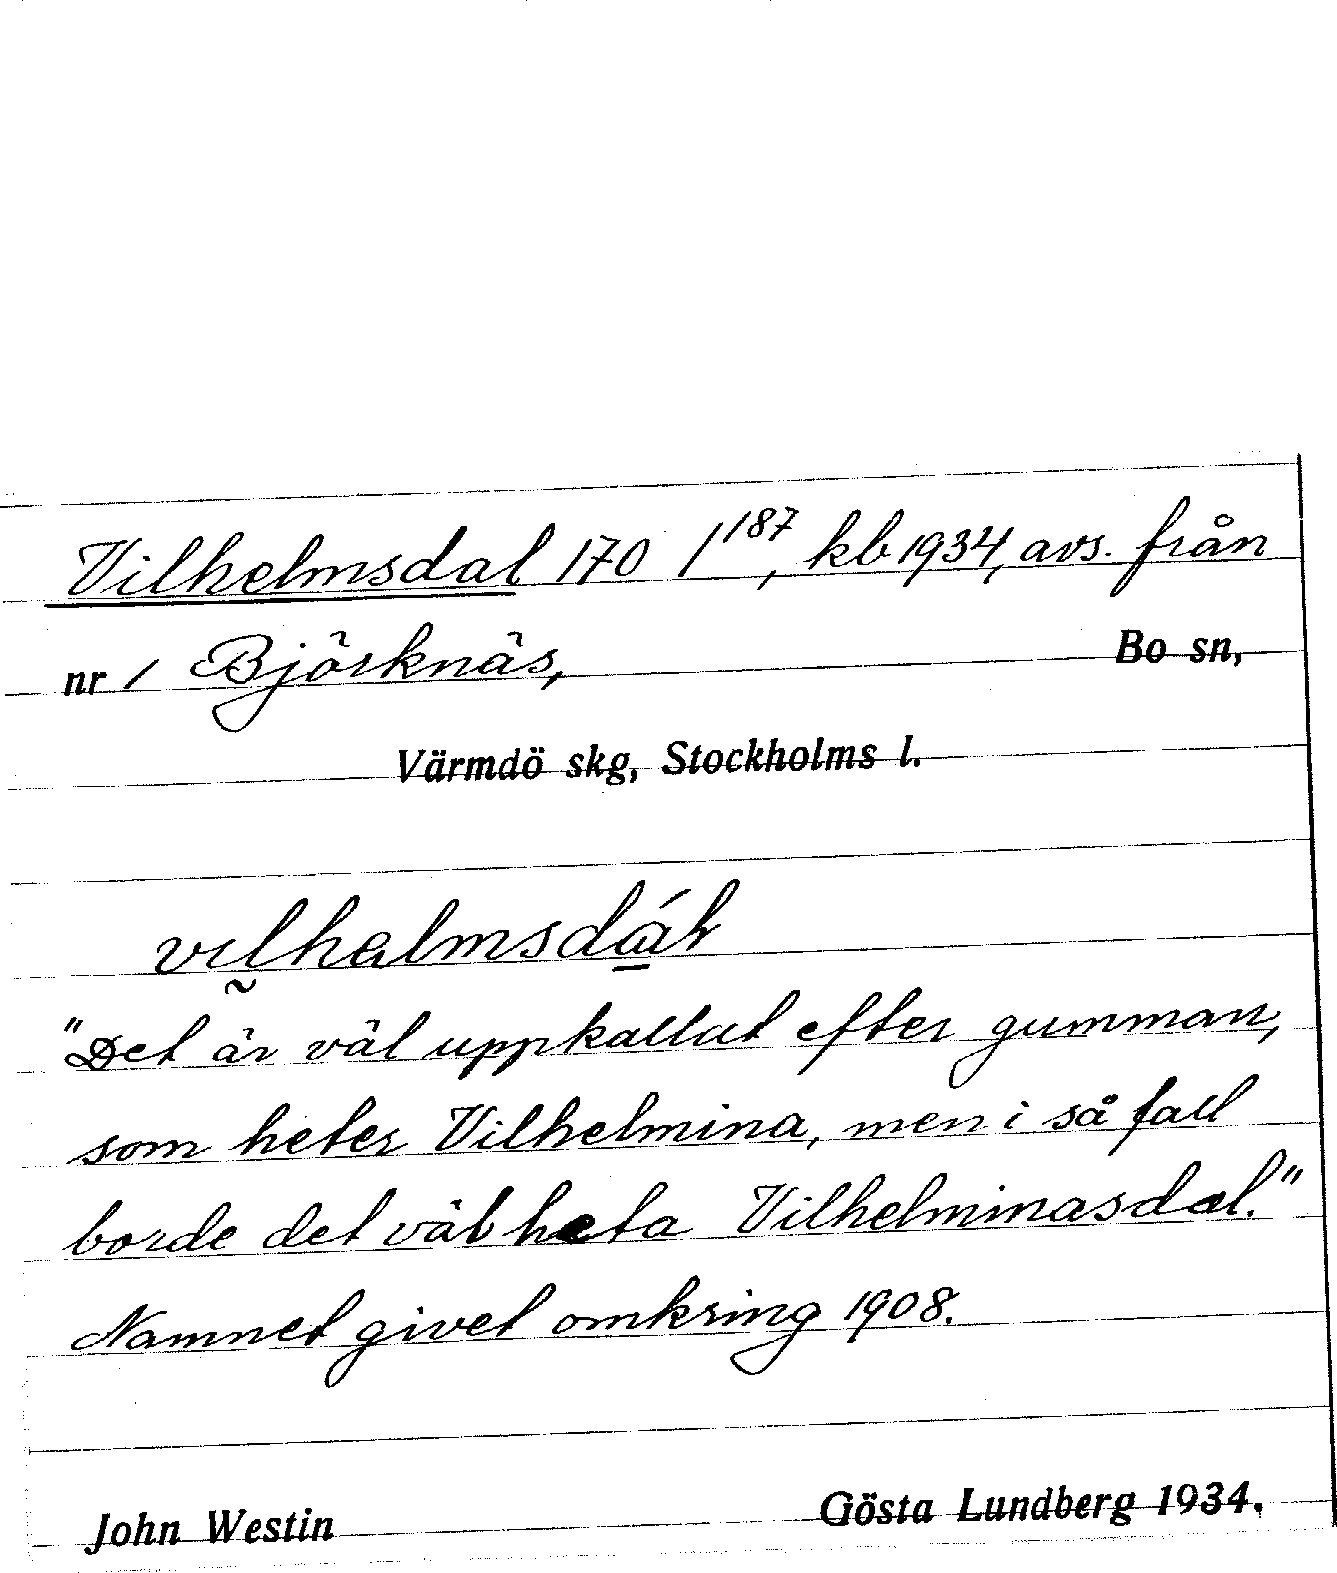 Vilhelmsdal 170 1¹⁸⁷, kb 1934, avs. från
nr 1 Björknäs, Bo sn,
Värmdö skg, Stockholms l.
vɪlhəlmsdá̱l
"Det är väl uppkallat efter gumman,
som heter Vilhelmina, men i så fall
borde det väl heta Vilhelminasdal."
Namnet givet omkring 1908.
John Westin Gösta Lundberg 1934.